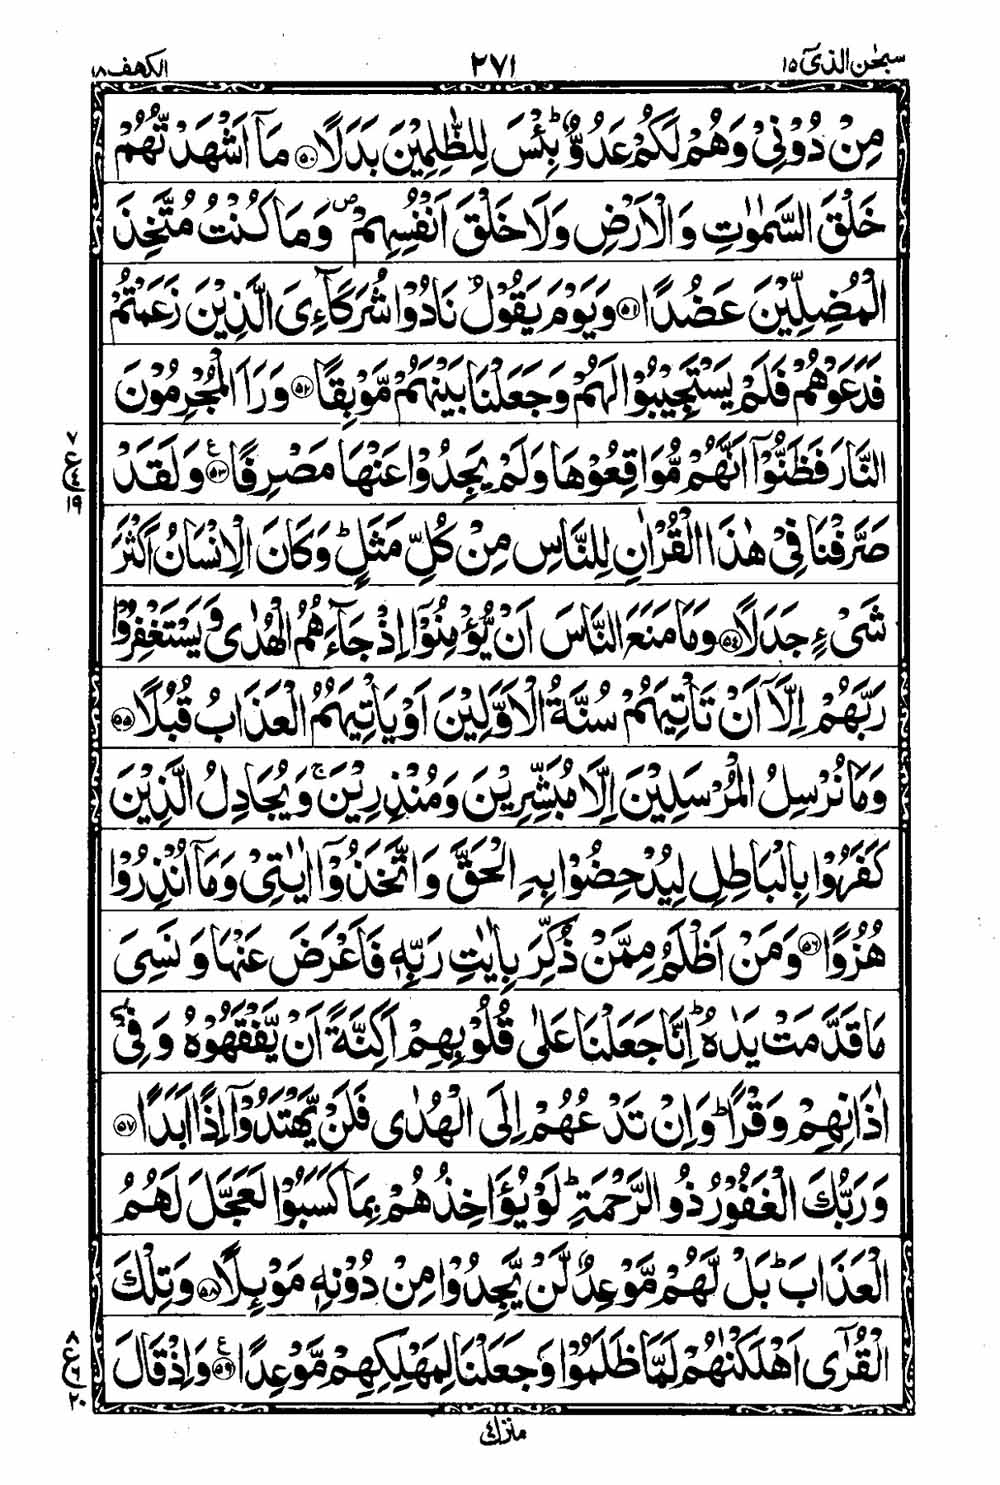 سبحٰن الذی ۱۵ ۲۷۱ الکهف ۱۸
مِنْ دُوْنِیْ وَهُمْ لَكُمْ عَدُوٌّ ؕ بِئْسَ لِلظّٰلِمِیْنَ بَدَلًا ﴿۵۰﴾ مَاۤ اَشْهَدْتُّهُمْ
خَلْقَ السَّمٰوٰتِ وَالْاَرْضِ وَلَا خَلْقَ اَنْفُسِهِمْ ۪ وَمَا كُنْتُ مُتَّخِذَ
الْمُضِلِّیْنَ عَضُدًا ﴿۵۱﴾ وَیَوْمَ یَقُوْلُ نَادُوْا شُرَكَآءِیَ الَّذِیْنَ زَعَمْتُمْ
فَدَعَوْهُمْ فَلَمْ یَسْتَجِیْبُوْا لَهُمْ وَجَعَلْنَا بَیْنَهُمْ مَّوْبِقًا ﴿۵۲﴾ وَرَاَ الْمُجْرِمُوْنَ
النَّارَ فَظَنُّوْۤا اَنَّهُمْ مُّوَاقِعُوْهَا وَلَمْ یَجِدُوْا عَنْهَا مَصْرِفًا ﴿۵۳﴾ ع وَلَقَدْ
۷ ع ۴ ۱۹
صَرَّفْنَا فِیْ هٰذَا الْقُرْاٰنِ لِلنَّاسِ مِنْ كُلِّ مَثَلٍ ؕ وَكَانَ الْاِنْسَانُ اَكْثَرَ
شَیْءٍ جَدَلًا ﴿۵۴﴾ وَمَا مَنَعَ النَّاسَ اَنْ یُّؤْمِنُوْۤا اِذْ جَآءَهُمُ الْهُدٰی وَیَسْتَغْفِرُوْا
رَبَّهُمْ اِلَّاۤ اَنْ تَاْتِیَهُمْ سُنَّةُ الْاَوَّلِیْنَ اَوْ یَاْتِیَهُمُ الْعَذَابُ قُبُلًا ﴿۵۵﴾
وَمَا نُرْسِلُ الْمُرْسَلِیْنَ اِلَّا مُبَشِّرِیْنَ وَمُنْذِرِیْنَ ۚ وَیُجَادِلُ الَّذِیْنَ
كَفَرُوْا بِالْبَاطِلِ لِیُدْحِضُوْا بِهِ الْحَقَّ وَاتَّخَذُوْۤا اٰیٰتِیْ وَمَاۤ اُنْذِرُوْا
هُزُوًا ﴿۵۶﴾ وَمَنْ اَظْلَمُ مِمَّنْ ذُكِّرَ بِاٰیٰتِ رَبِّهٖ فَاَعْرَضَ عَنْهَا وَنَسِیَ
مَا قَدَّمَتْ یَدٰهُ ؕ اِنَّا جَعَلْنَا عَلٰی قُلُوْبِهِمْ اَكِنَّةً اَنْ یَّفْقَهُوْهُ وَفِیْۤ
اٰذَانِهِمْ وَقْرًا ؕ وَاِنْ تَدْعُهُمْ اِلَی الْهُدٰی فَلَنْ یَّهْتَدُوْۤا اِذًا اَبَدًا ﴿۵۷﴾
وَرَبُّكَ الْغَفُوْرُ ذُو الرَّحْمَةِ ؕ لَوْ یُؤَاخِذُهُمْ بِمَا كَسَبُوْا لَعَجَّلَ لَهُمُ
الْعَذَابَ ؕ بَلْ لَّهُمْ مَّوْعِدٌ لَّنْ یَّجِدُوْا مِنْ دُوْنِهٖ مَوْئِلًا ﴿۵۸﴾ وَتِلْكَ
الْقُرٰۤی اَهْلَكْنٰهُمْ لَمَّا ظَلَمُوْا وَجَعَلْنَا لِمَهْلِكِهِمْ مَّوْعِدًا ﴿۵۹﴾ ع وَاِذْ قَالَ
۸ ع ۶ ۲۰
منزل ۴